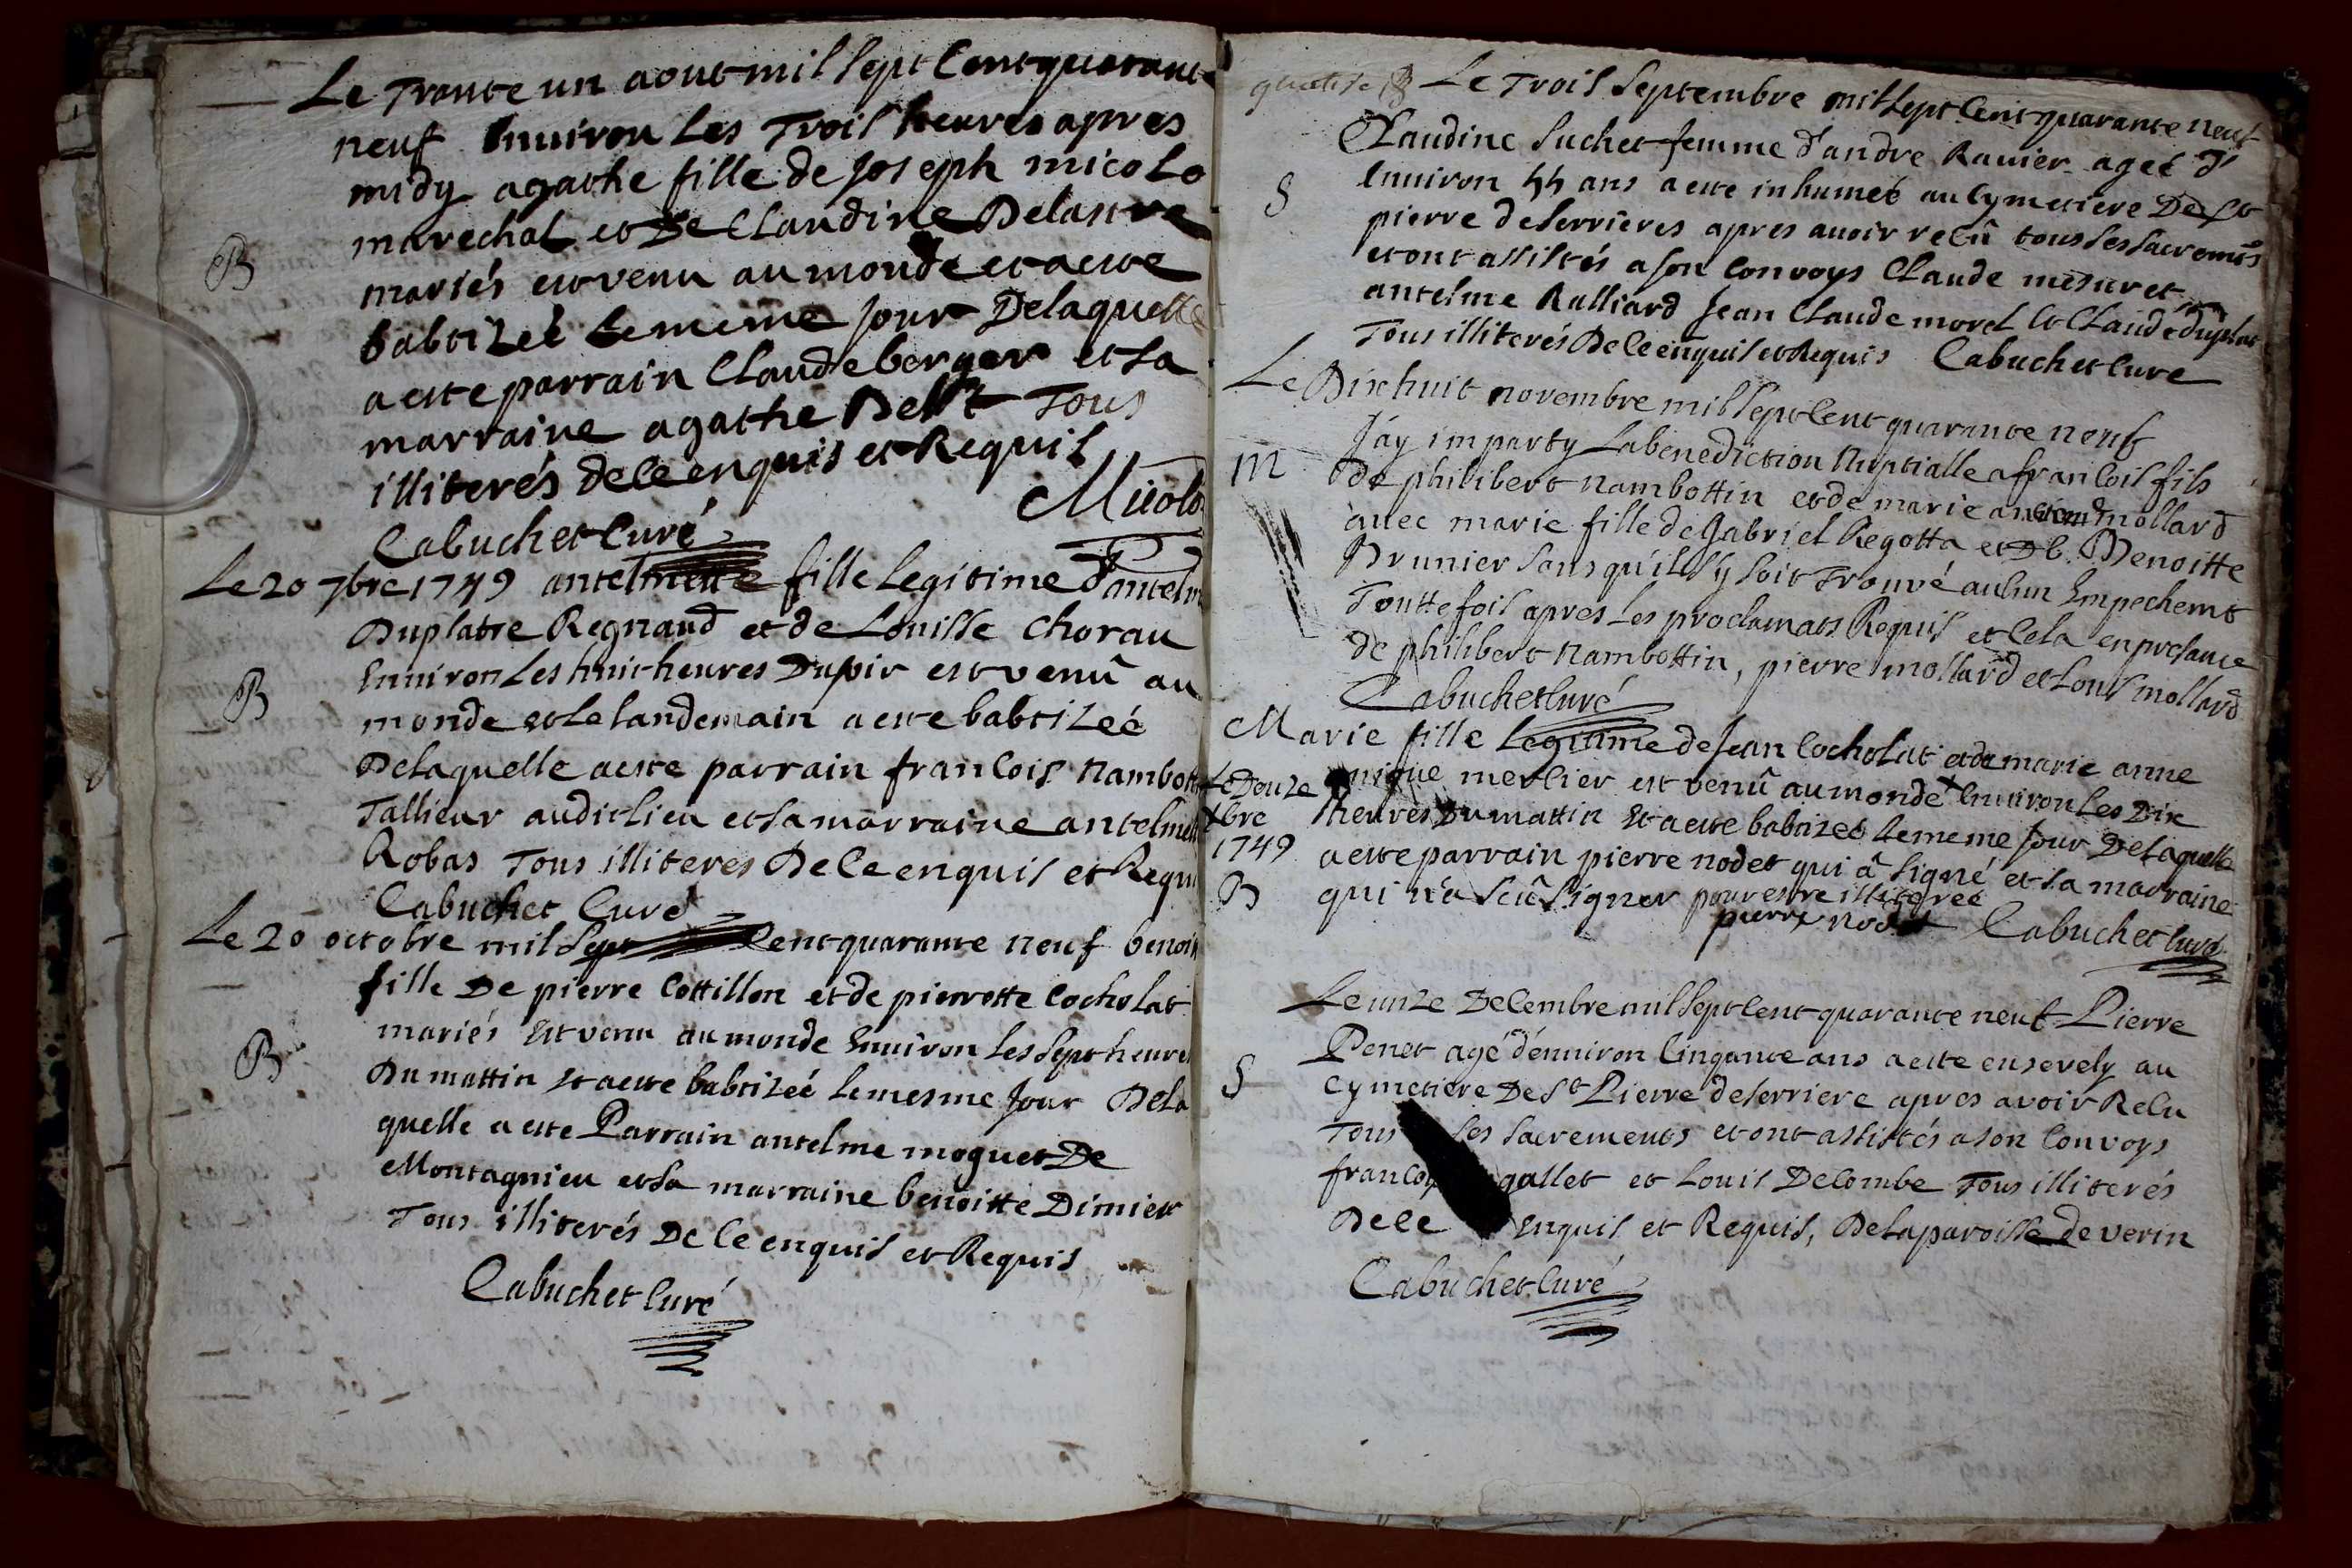 Le Trante un aout mil Sept Cent quarante
neuf Environ Les Trois heures apres
midy agathe fille de Joseph micolo
marechal et De Claudine Delastre
B
mariés est venu au monde et a este
babtizeé Le meme Jour Delaquelle
a este parrain Claude berger et sa
marraine agathe Tous
illiterés de ce enquis et Requis
Micolo
Cabuchet Curé
Le 20 7bre 1749 antelmette fille Legitime d'antelm
Duplatre Regnaud et de Louisse Chorau
Environ Les huit heures Du soir est venû au
B
monde et Le landemain a este babtizeé
Delaquelle a este parrain francois nambott
Tallieur audit lieu et sa marraine antelmett
Robas Tous illiteres De Ce enquis et Requi
Cabuchet Curé
Le 20 octobre mil Sept Cent quarante neuf benoit
fille De pierre Cottillon et de pierrotte Cocholat
mariés Est venu au monde Environ Les Sept heures
B
Du mattin Et a este babtizeé Le mesme Jour Dela
quelle a este Parrain antelme moguet De
Montagnieu et sa marraine benoitte Dimier
Tous illiterés De Ce enquis et Requis
Cabuchet Curé
Le Trois Septembre mil Sept Cent quarante neuf
Claudine Suchet femme d'andre Ravier ageé d'
Environ 44 ans a este inhumeé au Cymetiere De St
S
pierre deserrieres apres avoir reCû tous les sacremts
et ont assistés a son Convoys Claude mesuret
antelme Ralliard Jean Claude morel et Claude duplat
Tous illiterés De Ce enquis et Requis Cabuchet Cure
Le Dix huit novembre mil Sept Cent quarante neuf
J'ay imparty La benediction Nuptialle a francois fils
m
de philibert nambottin et de marie mollard
avec marie fille de Gabriel Regotta et De Benoitte
Brunier sans qu'il S'y soit Trouvé auCun Empechemt
Toutte fois apres Les proclamats Requis et Cela en presance
de philibert nambottin, pierre mollard et Louis mollard
Cabuchet Curé
Marie fille Legitime de Jean Cocholat et de marie anne
Le Douze
unique merlier est venû au monde Environ Les Dix
xbre
heures Du mattin Et a este babtizeé Le meme Jour Delaquelle
1749
a este parrain pierre nodet qui â Signé et sa marraine
B
qui n'a sCû Signer pour estre illitereé
pierre nodet Cabuchet Curé
Le unze DeCembre mil Sept Cent quarante neuf Pierre
Penet agé d'environ Cinqante ans a este ensevely au
S
Cymetiere De St Pierre deserriere apres avoir ReCu
Tous les sacrements et ont assistés a son Convoys
francoi gallet et Louis DeCombe Tous illiterés
De Ce Enquis et Requis, De la paroisse de verin
Cabuchet Curé